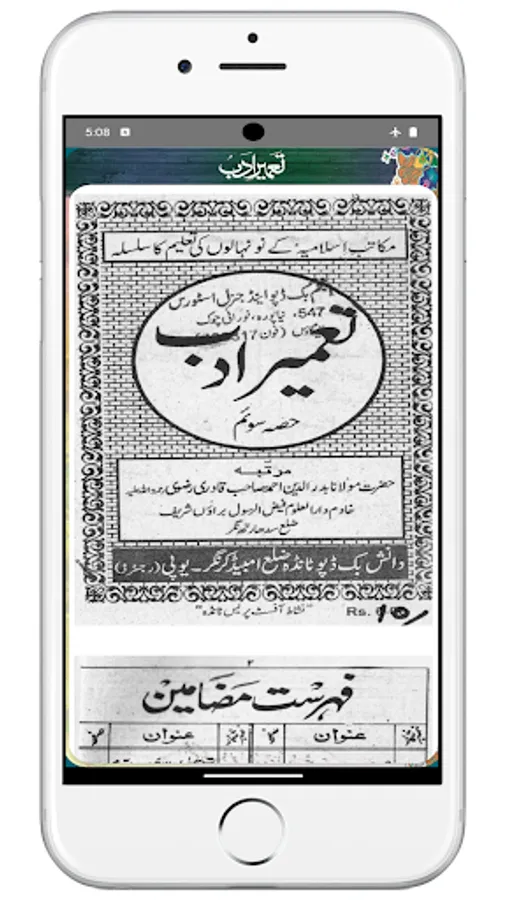 5:08
تعمیر ادب
مکاتب اسلامیہ کے نونہالوں کی تعلیم کا سلسلہ
بک ڈپو اینڈ جنرل اسٹورس
547، نیاپورہ، نورانی چوک
(فون
تعمیر ادب
حصہ سوئم
مرتبہ
حضرت مولانا بدر الدین احمد صاحب قادری رضوی
خادم دارالعلوم فیض الرسول براؤں شریف
ضلع سدھارتھ نگر
دانش بک ڈپو ٹانڈہ ضلع امبیڈکر نگر۔ یوپی (رجسٹرڈ)
"نشاط آفسٹ پریس ٹانڈہ" Rs.
۲
فہرست مضامین
عنوان عنوان